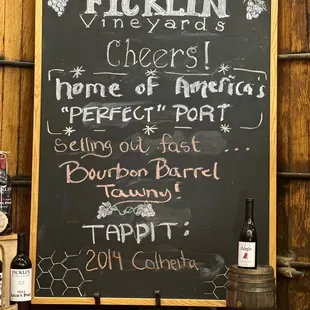 FICKLIN
Vineyards
Cheers!
Home of America's
"PERFECT" PORT
Selling out fast ...
Bourbon Barrel
Tawny!
TAPPIT:
2014 Colheita
FICKLIN